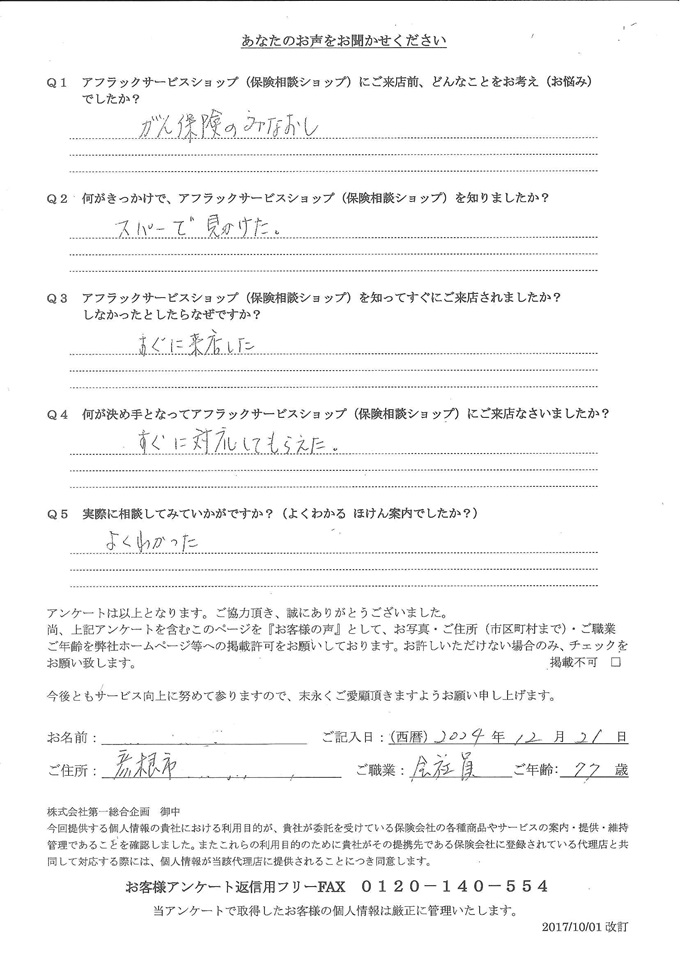 あなたのお声をお聞かせください
Q1 アフラックサービスショップ（保険相談ショップ）にご来店前、どんなことをお考え（お悩み）
でしたか？
がん保険のみなおし
Q2 何がきっかけで、アフラックサービスショップ（保険相談ショップ）を知りましたか？
スパーで見かけた。
Q3 アフラックサービスショップ（保険相談ショップ）を知ってすぐにご来店されましたか？
しなかったとしたらなぜですか？
すぐに来店した
Q4 何が決め手となってアフラックサービスショップ（保険相談ショップ）にご来店なさいましたか？
すぐに対応してもらえた。
Q5 実際に相談してみていかがですか？（よくわかる ほけん案内でしたか？）
よくわかった
アンケートは以上となります。ご協力頂き、誠にありがとうございました。
尚、上記アンケートを含むこのページを『お客様の声』として、お写真・ご住所（市区町村まで）・ご職業
ご年齢を弊社ホームページ等への掲載許可をお願いしております。お許しいただけない場合のみ、チェックを
お願い致します。 掲載不可 □
今後ともサービス向上に努めて参りますので、末永くご愛顧頂きますようお願い申し上げます。
お名前： ご記入日：(西暦) 2024 年 12 月 21 日
ご住所： 彦根市 ご職業： 会社員 ご年齢： 77 歳
株式会社第一総合企画 御中
今回提供する個人情報の貴社における利用目的が、貴社が委託を受けている保険会社の各種商品やサービスの案内・提供・維持
管理であることを確認しました。またこれらの利用目的のために貴社がその提携先である保険会社に登録されている代理店と共
同して対応する際には、個人情報が当該代理店に提供されることにつき同意します。
お客様アンケート返信用フリーFAX 0120－140－554
当アンケートで取得したお客様の個人情報は厳正に管理いたします。
2017/10/01 改訂